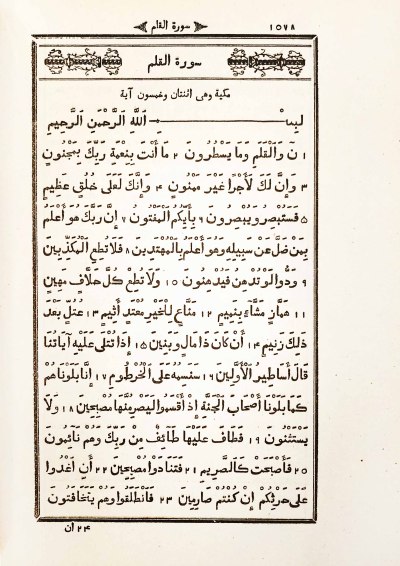 ١٥٧٨
سورة القلم
سورة القلم
مكية وهي اثنتان وخمسون آية
بِسْمِ اللَّهِ الرَّحْمَنِ الرَّحِيمِ
١ نٓ وَالْقَلَمِ وَمَا يَسْطُرُونَ ٢ مَا أَنْتَ بِنِعْمَةِ رَبِّكَ بِمَجْنُونٍ
٣ وَإِنَّ لَكَ لَأَجْرًا غَيْرَ مَمْنُونٍ ٤ وَإِنَّكَ لَعَلَى خُلُقٍ عَظِيمٍ
٥ فَسَتُبْصِرُ وَيُبْصِرُونَ ٦ بِأَيِّكُمُ الْمَفْتُونُ ٧ إِنَّ رَبَّكَ هُوَ أَعْلَمُ
بِمَنْ ضَلَّ عَنْ سَبِيلِهِ وَهُوَ أَعْلَمُ بِالْمُهْتَدِينَ ٨ فَلَا تُطِعِ الْمُكَذِّبِينَ
٩ وَدُّوا لَوْ تُدْهِنُ فَيُدْهِنُونَ ١٠ وَلَا تُطِعْ كُلَّ حَلَّافٍ مَهِينٍ
١١ هَمَّازٍ مَشَّاءٍ بِنَمِيمٍ ١٢ مَنَّاعٍ لِلْخَيْرِ مُعْتَدٍ أَثِيمٍ ١٣ عُتُلٍّ بَعْدَ
ذَلِكَ زَنِيمٍ ١٤ أَنْ كَانَ ذَا مَالٍ وَبَنِينَ ١٥ إِذَا تُتْلَى عَلَيْهِ آيَاتُنَا
قَالَ أَسَاطِيرُ الْأَوَّلِينَ ١٦ سَنَسِمُهُ عَلَى الْخُرْطُومِ ١٧ إِنَّا بَلَوْنَاهُمْ
كَمَا بَلَوْنَا أَصْحَابَ الْجَنَّةِ إِذْ أَقْسَمُوا لَيَصْرِمُنَّهَا مُصْبِحِينَ ١٨ وَلَا
يَسْتَثْنُونَ ١٩ فَطَافَ عَلَيْهَا طَائِفٌ مِنْ رَبِّكَ وَهُمْ نَائِمُونَ
٢٠ فَأَصْبَحَتْ كَالصَّرِيمِ ٢١ فَتَنَادَوْا مُصْبِحِينَ ٢٢ أَنِ اغْدُوا
عَلَى حَرْثِكُمْ إِنْ كُنْتُمْ صَارِمِينَ ٢٣ فَانْطَلَقُوا وَهُمْ يَتَخَافَتُونَ
٢٤ أن